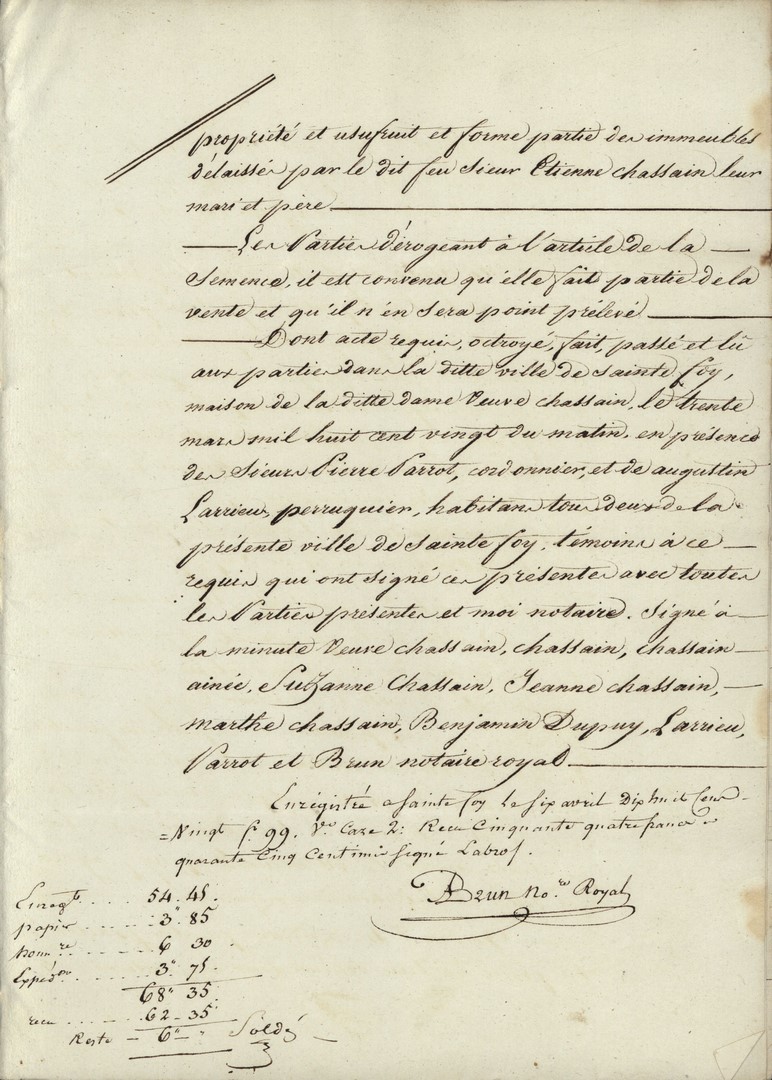 propriété et usufruit et forme partie des immeubles
délaissés par le dit feu Sieur Etienne chassain leur
mari et père
Les Parties dérogeant à l'article de la
Semence, il est convenu qu'elle fait partie de la
vente et qu'il n'en sera point prélevé
Dont acte requis, octroyé, fait, passé et lû
aux parties dans la ditte ville de Sainte foy,
maison de la ditte dame Veuve chassain, le trente
mars mil huit cent vingt du matin, en présence
des Sieurs Pierre Parrot, cordonnier, et de augustin
Larrieu, perruquier, habitans tous deux de la
présente ville de Sainte foy, témoins à ce
requis qui ont signé ces présentes avec toutes
les Parties présentes et moi notaire. Signé à
la minute Veuve chassain, chassain, chassain
ainée, Suzanne Chassain, Jeanne chassain,
marthe chassain, Benjamin Dupuy, Larrieu,
Parrot et Brun notaire royal
Enrégistré a Sainte foy le six avril Dix huit Cent
= Vingt f° 99. V° Caze 2: Reçu Cinquante quatre francs
quarante Cinq Centimes signé Labros.
Brun No.re Royal
Enregt. .... 54. 45.
papier .... 3" 85
honn.re .... 6 30.
Expédon .... 3" 75.
68" 35.
reçu .... 62 - 35
Reste - 6" - " Soldé